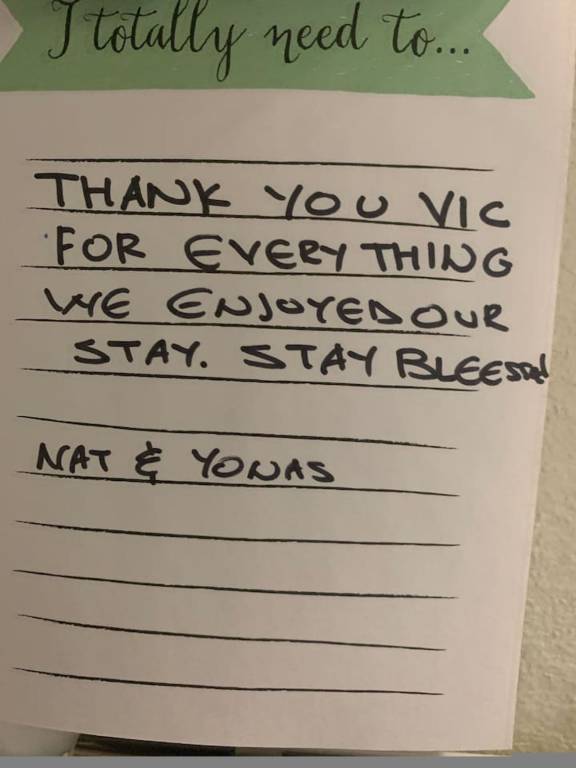 I totally need to...
THANK YOU VIC
FOR EVERYTHING
WE ENJOYED OUR
STAY. STAY BLEESSED
NAT & YONAS